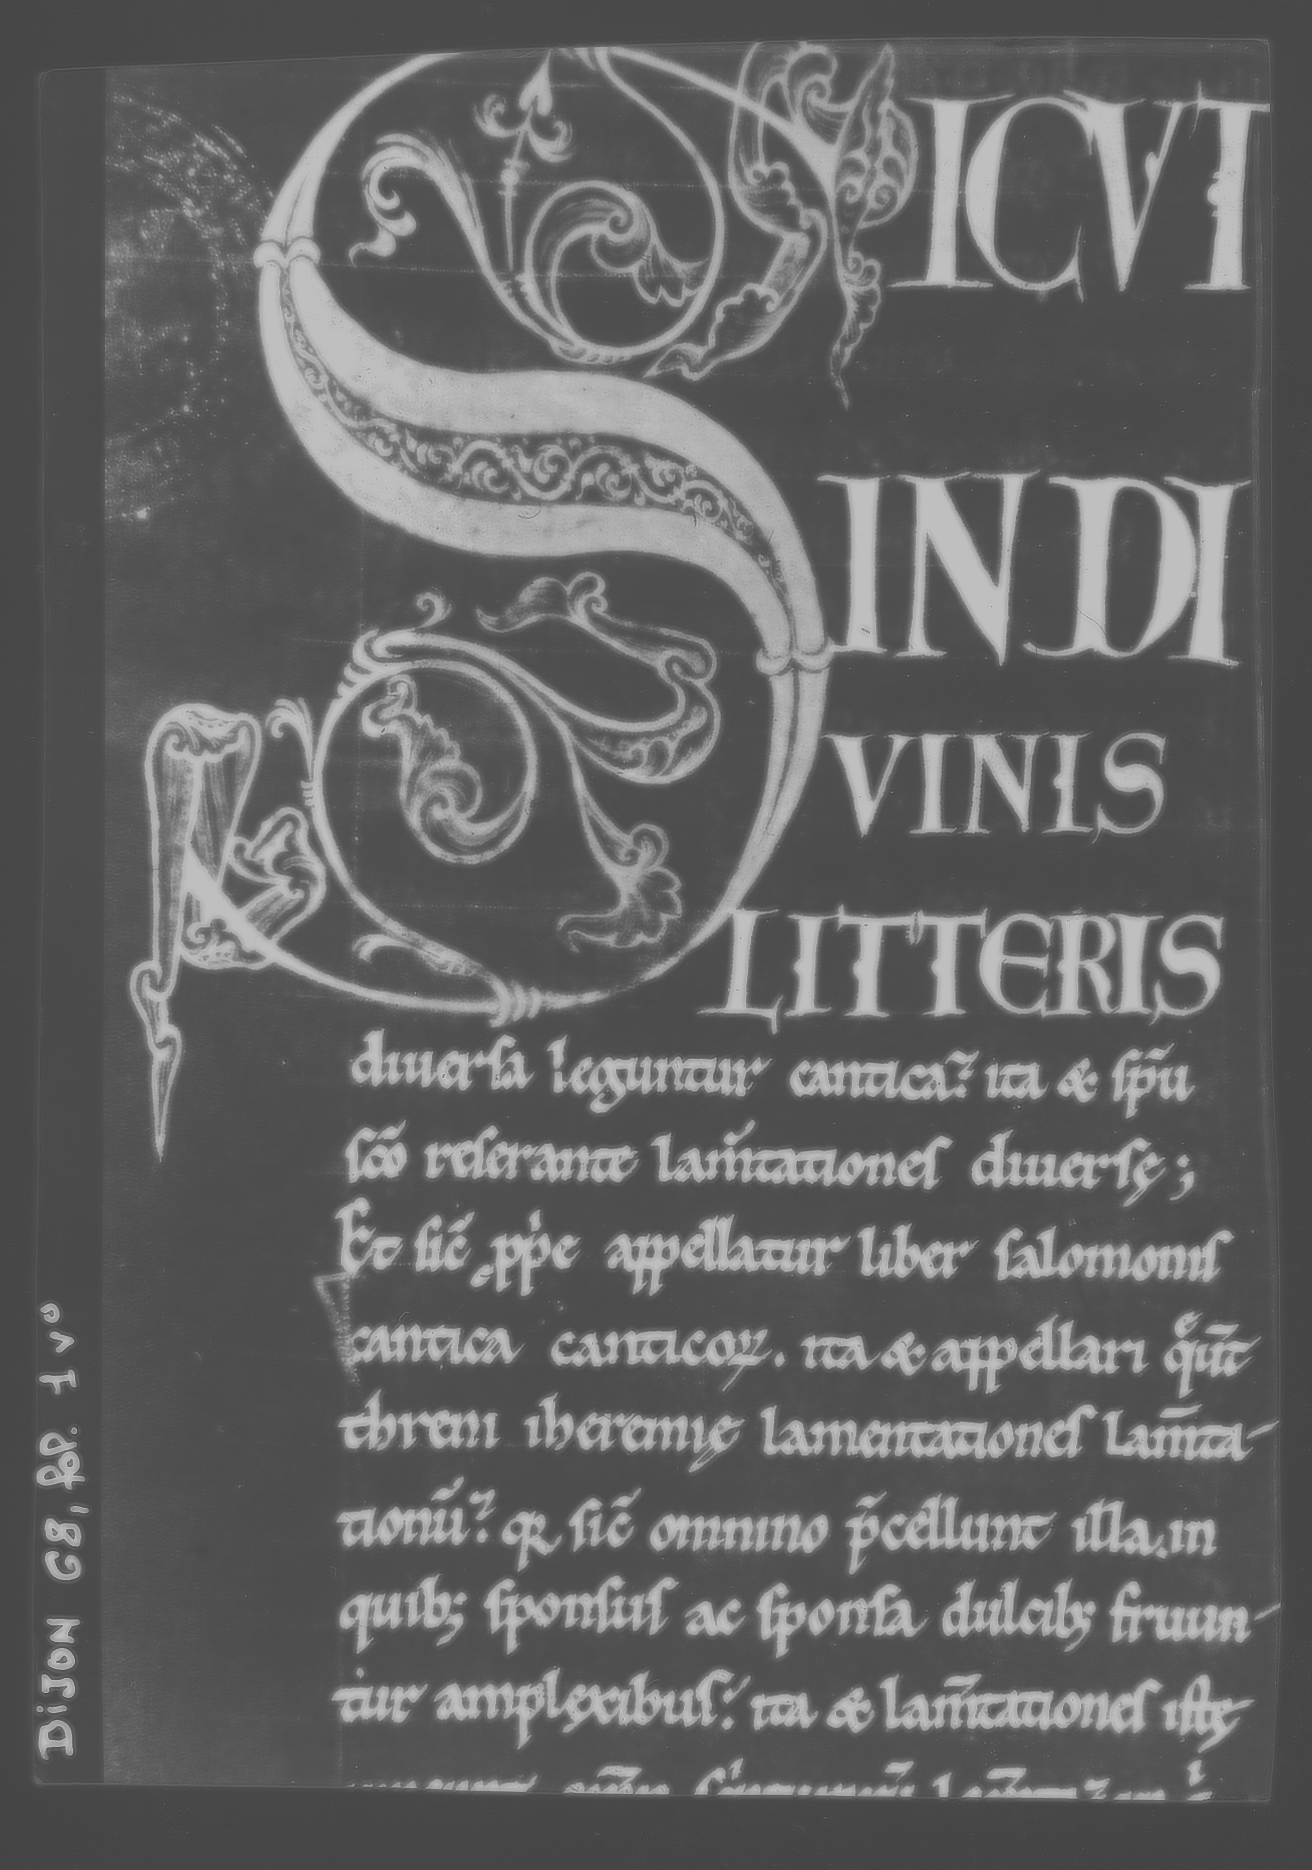 SICVT
IN DI
VINIS
LITTERIS
diuersa leguntur cantica? ita & sp̄u
sc̄o reserante lam̄tationes diuersę;
Et sic̄ ꝓp̍e appellatur liber salomonis
cantica canticoꝝ. ita & appellari q̊ūt
threni iheremię lamentationes lam̄ta-
tionū? qꝛ sic̄ omnino p̄cellunt illa. in
quib; sponsus ac sponsa dulcib; fruun-
tur amplexibus: ita & lam̄tationes istę
DiJON 68, fol. 1 vº